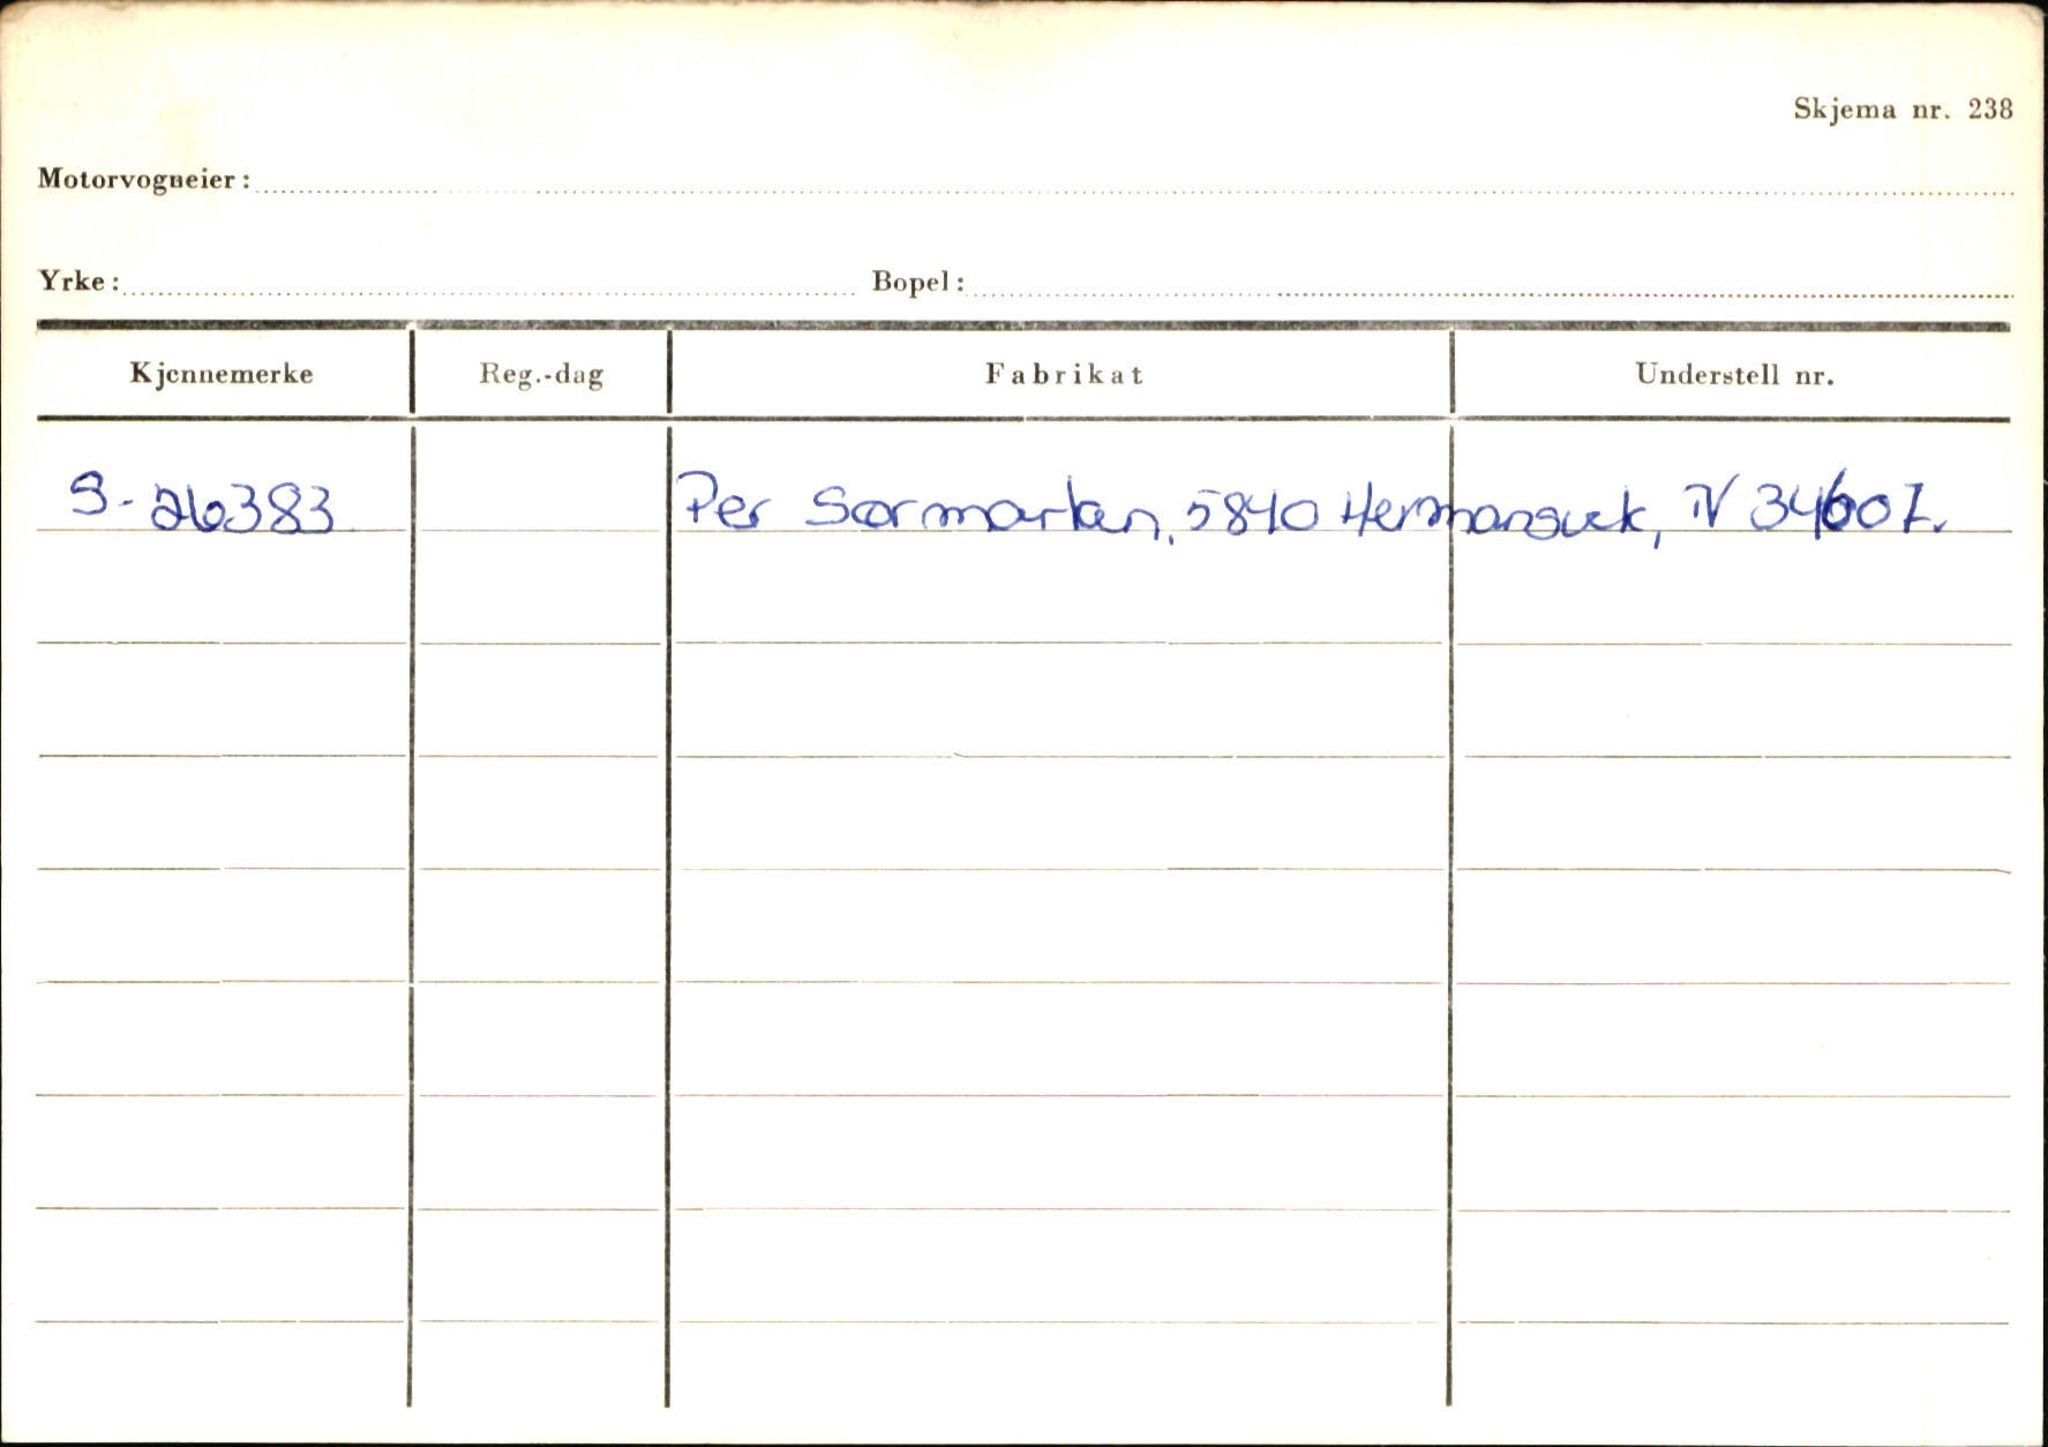 Skjema nr. 238
Motorvogneier:
Yrke: Bopel:
Kjennemerke Reg.-dag Fabrikat Understell nr.
S-26383 Per Sørmarken, 5840 Hermansverk, TV 34607.